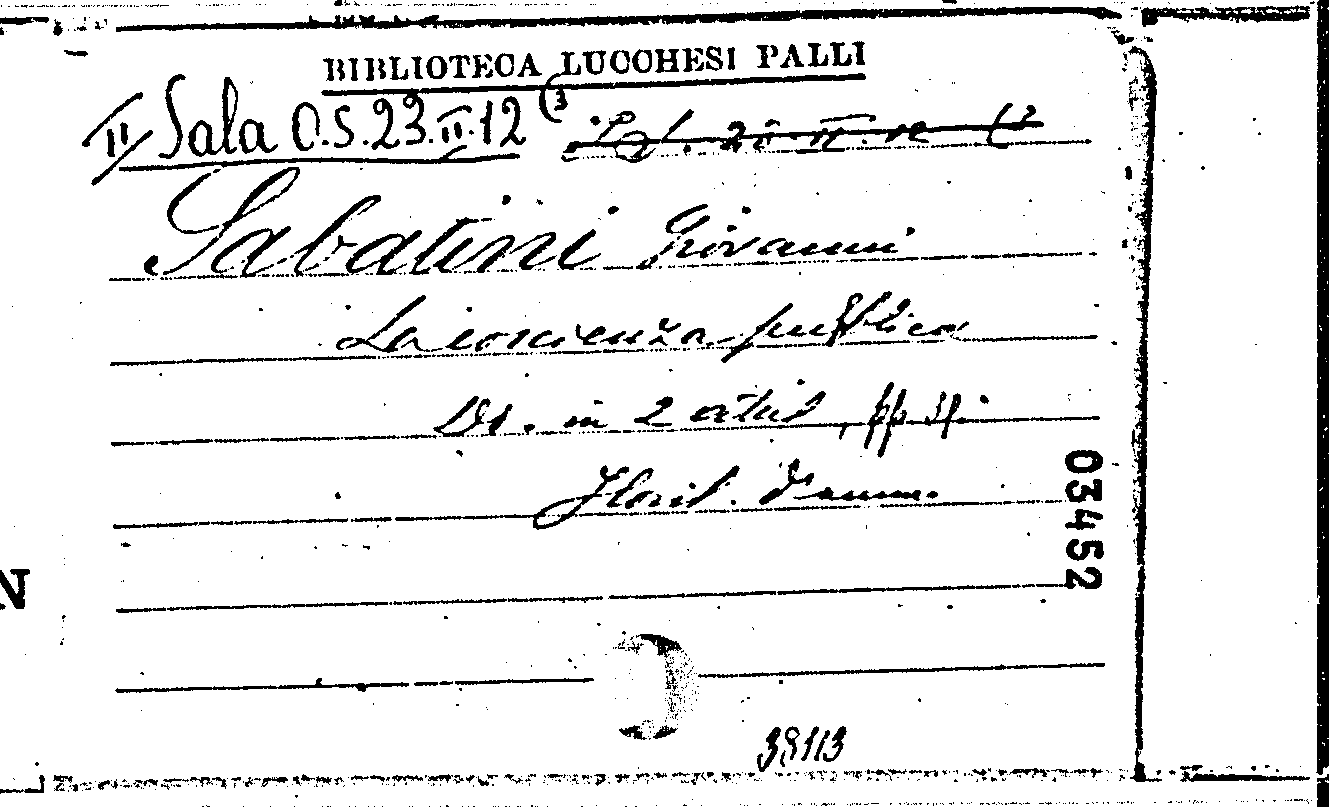 BIBLIOTECA LUCCHESI PALLI
II Sala O.S.23.II.12 (3
Sabatini Giovanni
La coscienza pubblica
Dr. in 2 atti, pp.
Florit. dramm.
03452
N
39113